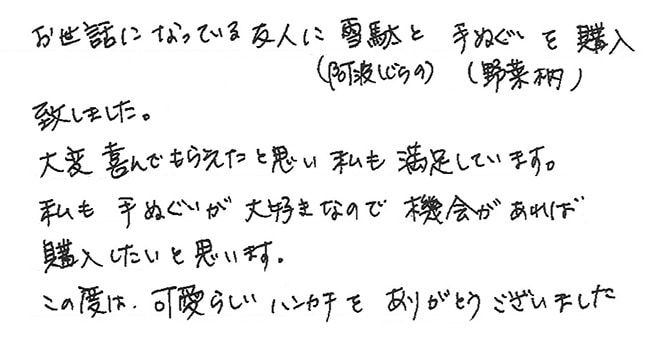 お世話になっている友人に雪駄と手ぬぐいを購入
(阿波しじらの) (野菜柄)
致しました。
大変喜んでもらえたと思い私も満足しています。
私も手ぬぐいが大好きなので機会があれば
購入したいと思います。
この度は、可愛らしいハンカチをありがとうございました